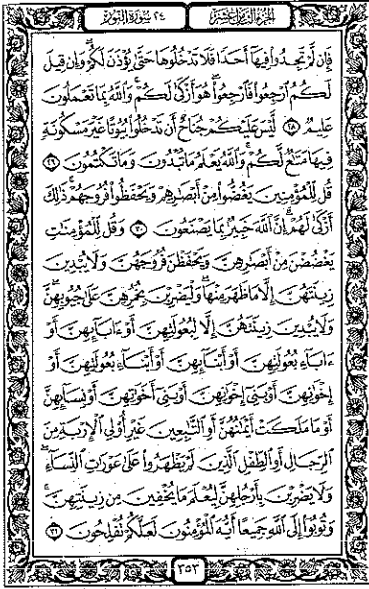 الجزء الثامن عشر
٢٤ سورة النور
فَإِن لَّمْ تَجِدُوا۟ فِيهَآ أَحَدًا فَلَا تَدْخُلُوهَا حَتَّىٰ يُؤْذَنَ لَكُمْ ۖ وَإِن قِيلَ
لَكُمُ ٱرْجِعُوا۟ فَٱرْجِعُوا۟ ۖ هُوَ أَزْكَىٰ لَكُمْ ۚ وَٱللَّهُ بِمَا تَعْمَلُونَ
عَلِيمٌ ٢٨ لَّيْسَ عَلَيْكُمْ جُنَاحٌ أَن تَدْخُلُوا۟ بُيُوتًا غَيْرَ مَسْكُونَةٍ
فِيهَا مَتَٰعٌ لَّكُمْ ۚ وَٱللَّهُ يَعْلَمُ مَا تُبْدُونَ وَمَا تَكْتُمُونَ ٢٩
قُل لِّلْمُؤْمِنِينَ يَغُضُّوا۟ مِنْ أَبْصَٰرِهِمْ وَيَحْفَظُوا۟ فُرُوجَهُمْ ۚ ذَٰلِكَ
أَزْكَىٰ لَهُمْ ۗ إِنَّ ٱللَّهَ خَبِيرٌۢ بِمَا يَصْنَعُونَ ٣٠ وَقُل لِّلْمُؤْمِنَٰتِ
يَغْضُضْنَ مِنْ أَبْصَٰرِهِنَّ وَيَحْفَظْنَ فُرُوجَهُنَّ وَلَا يُبْدِينَ
زِينَتَهُنَّ إِلَّا مَا ظَهَرَ مِنْهَا ۖ وَلْيَضْرِبْنَ بِخُمُرِهِنَّ عَلَىٰ جُيُوبِهِنَّ ۖ
وَلَا يُبْدِينَ زِينَتَهُنَّ إِلَّا لِبُعُولَتِهِنَّ أَوْ ءَابَآئِهِنَّ أَوْ
ءَابَآءِ بُعُولَتِهِنَّ أَوْ أَبْنَآئِهِنَّ أَوْ أَبْنَآءِ بُعُولَتِهِنَّ أَوْ
إِخْوَٰنِهِنَّ أَوْ بَنِىٓ إِخْوَٰنِهِنَّ أَوْ بَنِىٓ أَخَوَٰتِهِنَّ أَوْ نِسَآئِهِنَّ
أَوْ مَا مَلَكَتْ أَيْمَٰنُهُنَّ أَوِ ٱلتَّٰبِعِينَ غَيْرِ أُو۟لِى ٱلْإِرْبَةِ مِنَ
ٱلرِّجَالِ أَوِ ٱلطِّفْلِ ٱلَّذِينَ لَمْ يَظْهَرُوا۟ عَلَىٰ عَوْرَٰتِ ٱلنِّسَآءِ ۖ
وَلَا يَضْرِبْنَ بِأَرْجُلِهِنَّ لِيُعْلَمَ مَا يُخْفِينَ مِن زِينَتِهِنَّ ۚ
وَتُوبُوٓا۟ إِلَى ٱللَّهِ جَمِيعًا أَيُّهَ ٱلْمُؤْمِنُونَ لَعَلَّكُمْ تُفْلِحُونَ ٣١
٣٥٣